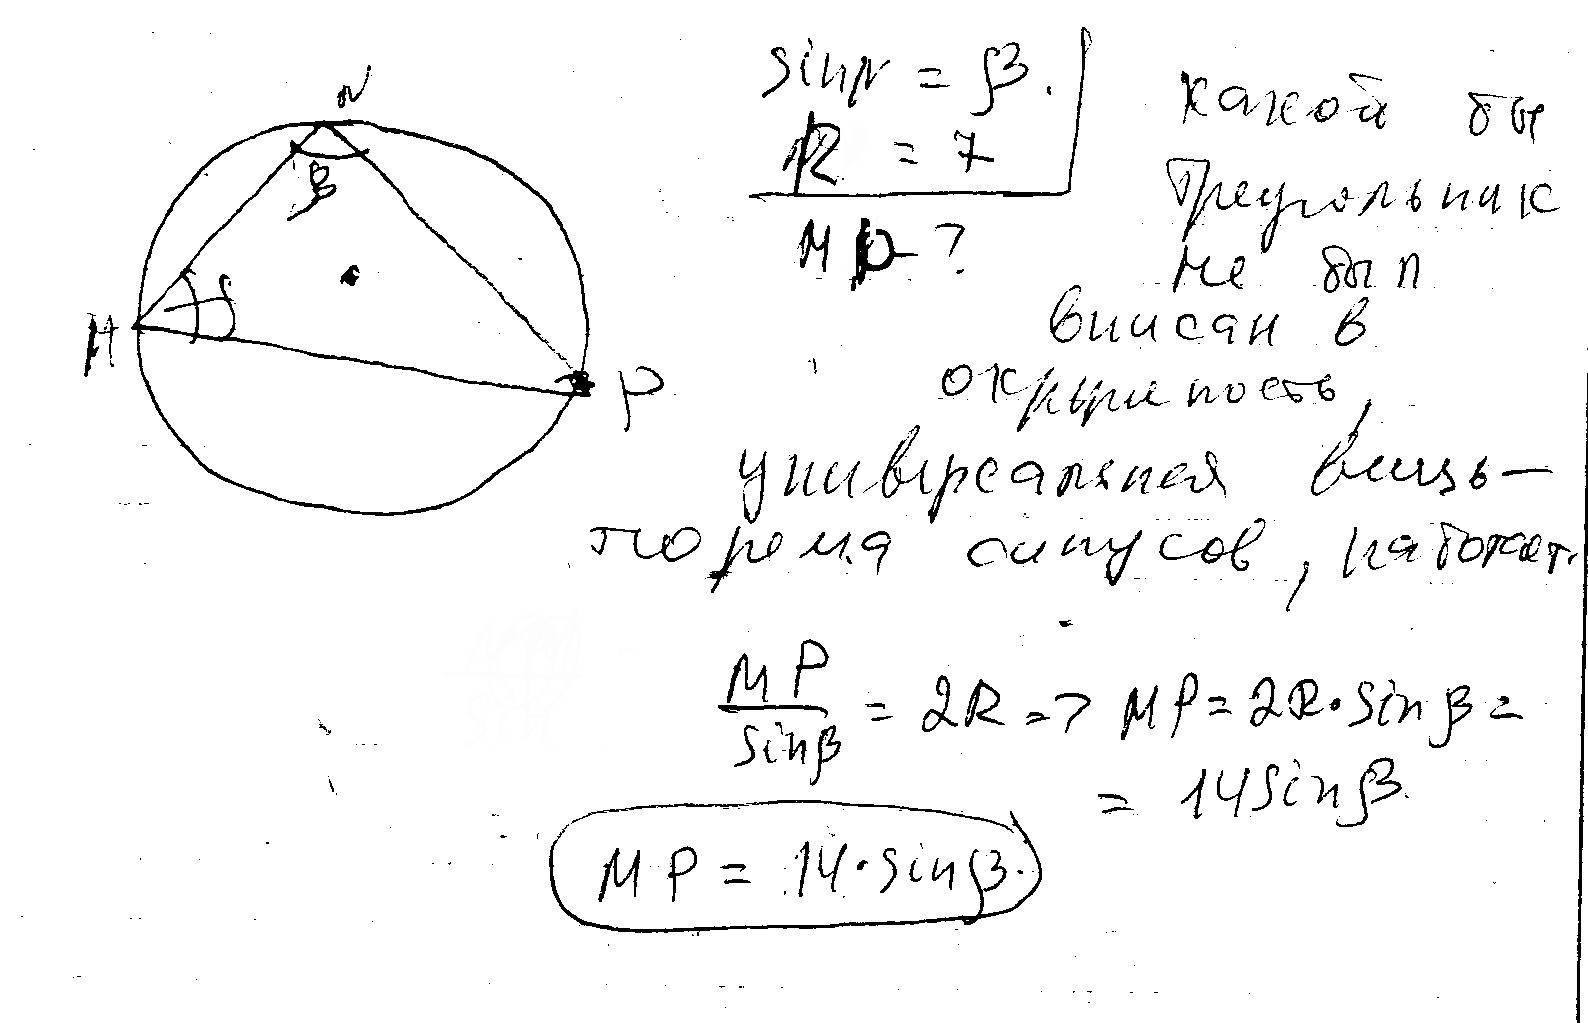 N
β
M
P
sin N = β.
R = 7
MP - ?
какой бы
треугольник
не был
вписан в
окружность,
универсальная вещь -
теорема синусов, работает.
MP / sinβ = 2R => MP = 2R·sinβ =
= 14sinβ.
MP = 14·sinβ.